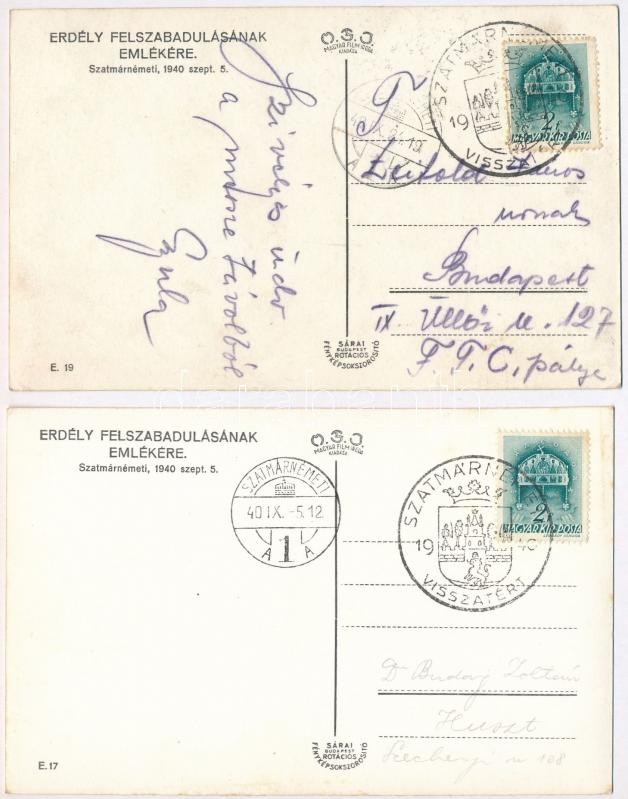 ERDÉLY FELSZABADULÁSÁNAK
EMLÉKÉRE.
Szatmárnémeti, 1940 szept. 5.
O.S.O.
MAGYAR FILM IRODA
KIADÁSA
SZATMÁRN
19
VISSZATÉRT
2
MAGYAR KIR. POSTA
40 IX. 19
Szívélyes üdv
a messze távolból
Gyula
János
úrnak
Budapest
IX. Üllői u. 127
F.T.C. pálya
SÁRAI
BUDAPEST
ROTÁCIÓS
FÉNYKÉPSOKSZOROSÍTÓ
E. 19
darabanth
ERDÉLY FELSZABADULÁSÁNAK
EMLÉKÉRE.
Szatmárnémeti, 1940 szept. 5.
O.S.O.
MAGYAR FILM IRODA
KIADÁSA
SZATMÁRNÉMETI
40 IX. -5. 12
A 1 A
SZATMÁRNÉ
19 40
VISSZATÉRT
2
MAGYAR KIR. POSTA
Dr Zoltán
Huszt
Széchenyi u 108
SÁRAI
BUDAPEST
ROTÁCIÓS
FÉNYKÉPSOKSZOROSÍTÓ
E. 17